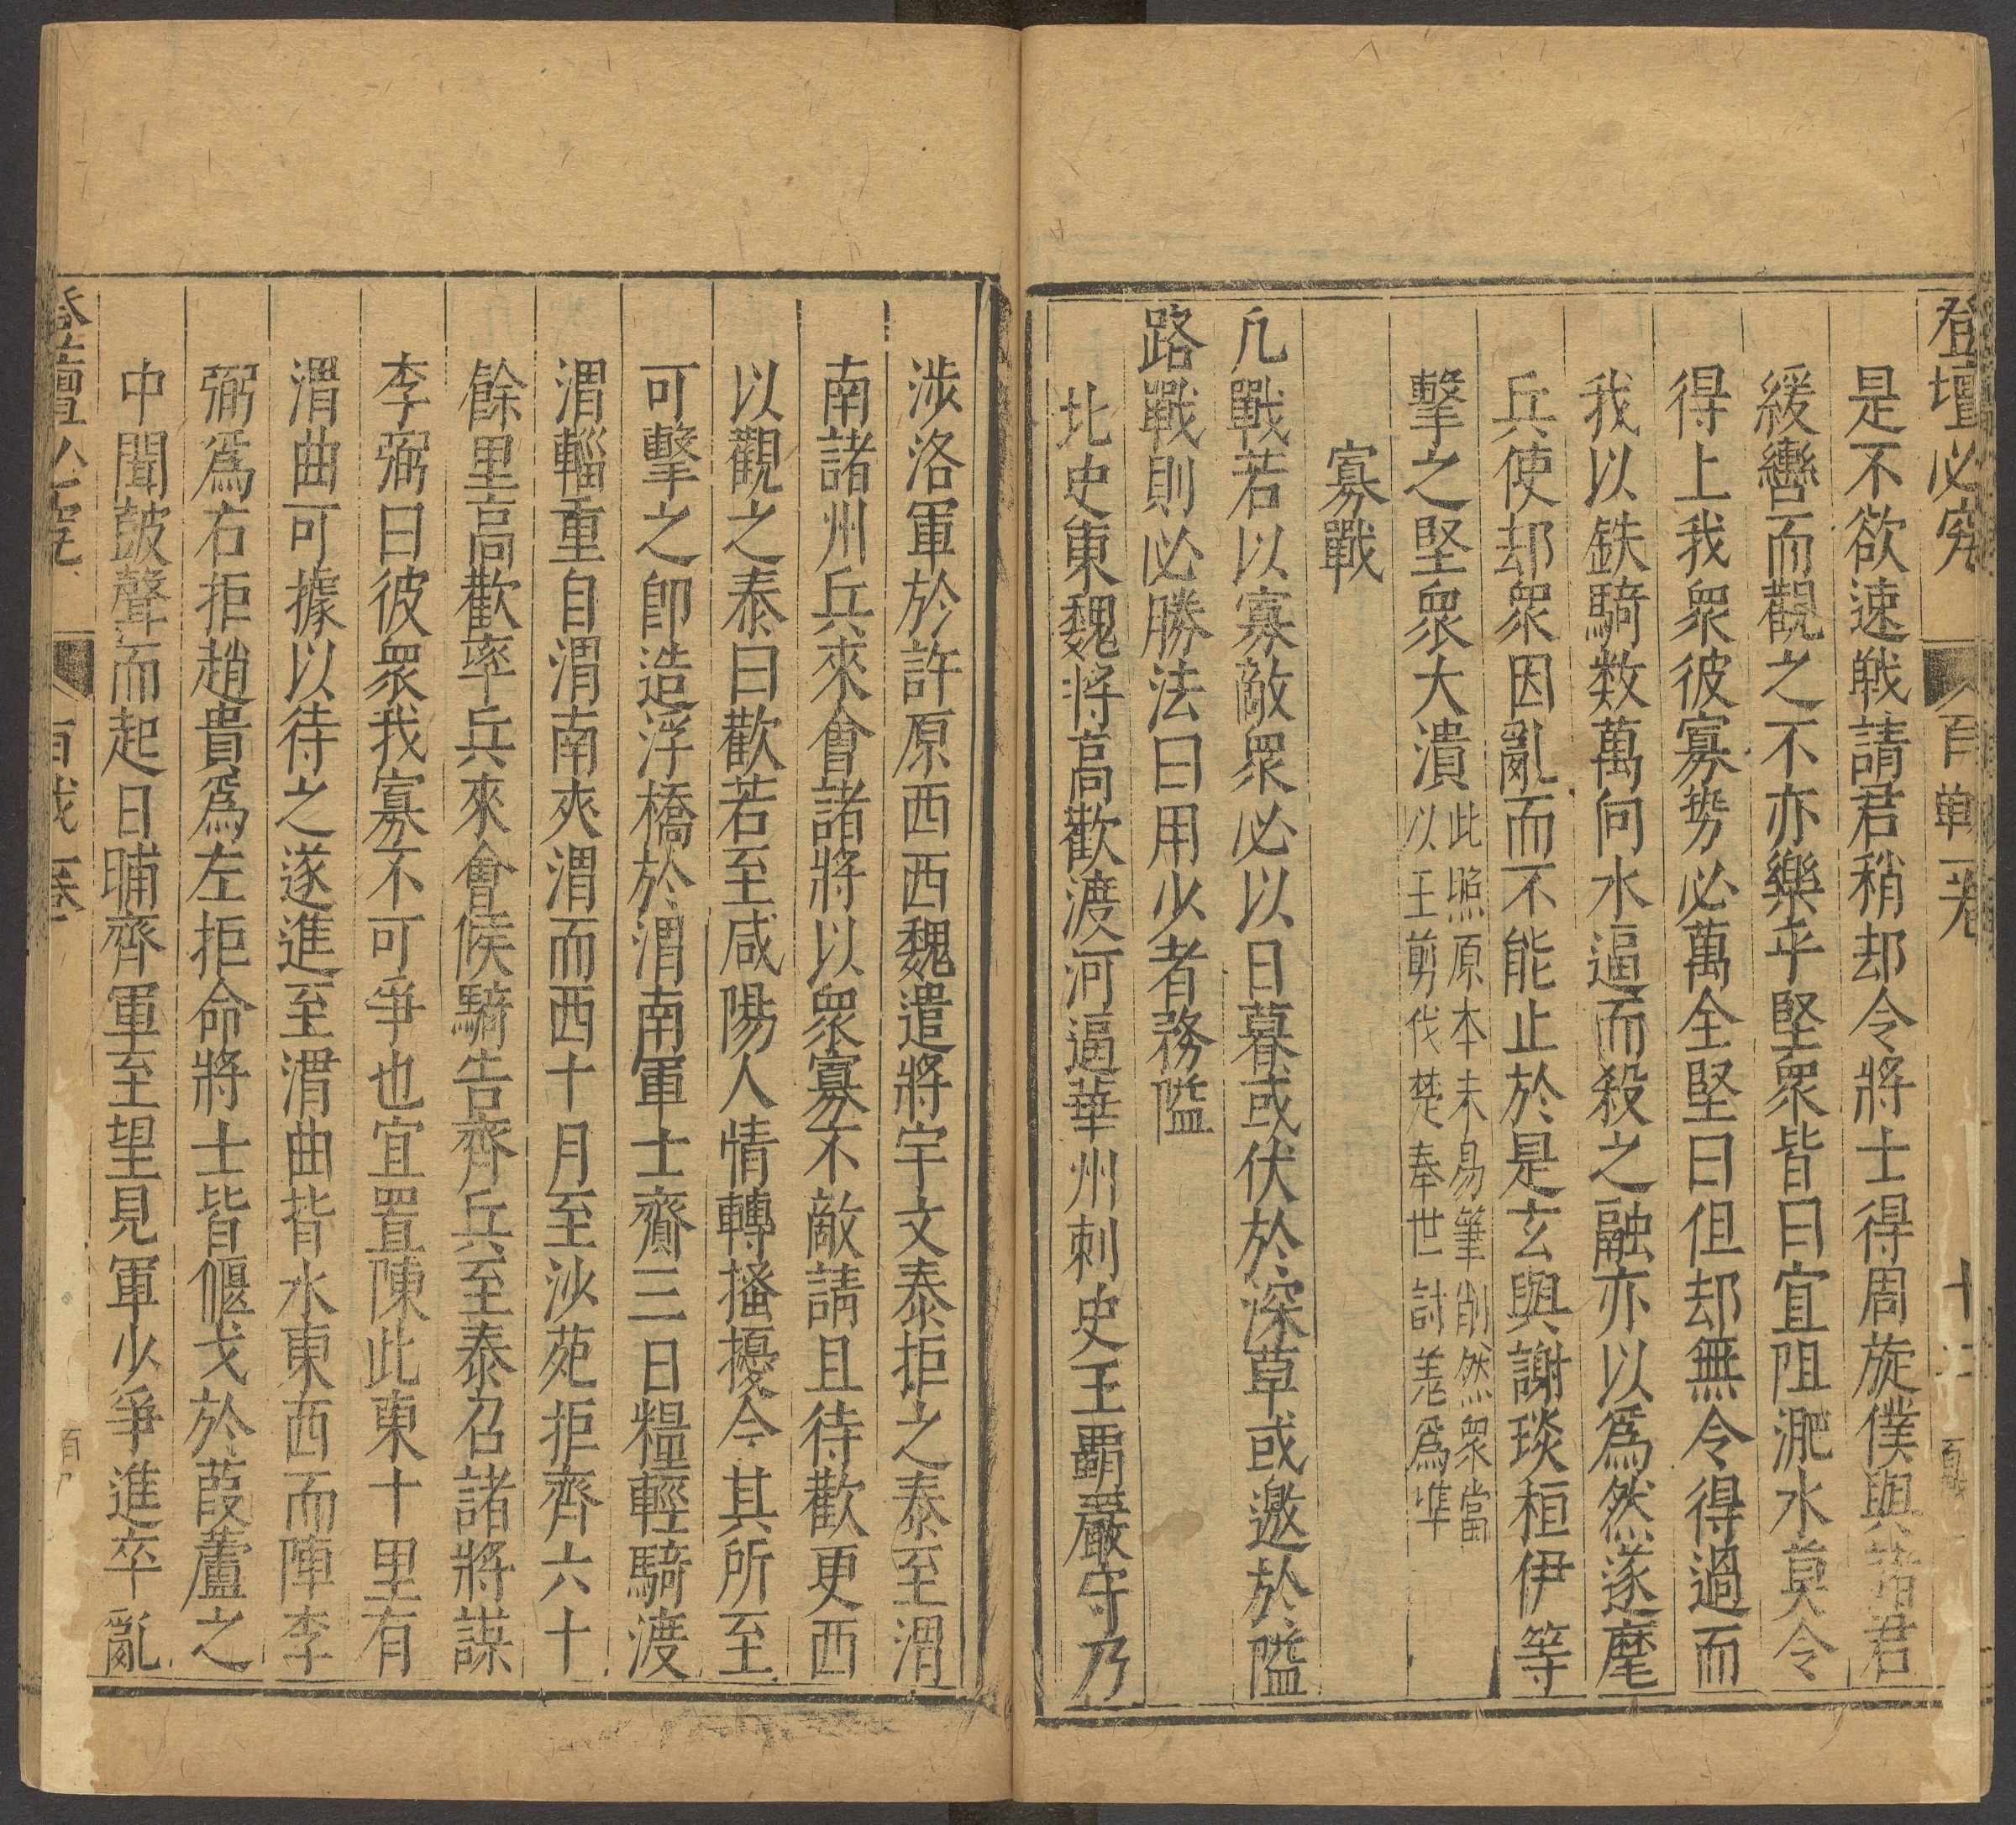 登壇必究 百戰一卷 十二
是不欲速戦請君稍却令將士得周旋僕與諸君
緩轡而觀之不亦樂乎堅衆皆曰宜阻淝水莫令
得上我衆彼寡势必萬全堅曰但却無令得過而
我以鉄騎数萬向水逼而殺之融亦以爲然遂麾
兵使却衆因亂而不能止於是玄與謝琰桓伊等
擊之堅衆大潰此照原本未易筆削然衆當
以王剪伐楚奉世討羌爲準
寡戰
凢戰若以寡敵衆必以日暮或伏於深草或邀於隘
路戰則必勝法曰用少者務隘
北史東魏将高歡渡河逼華州刺史王覇嚴守乃
涉洛軍於許原西西魏遣將宇文泰拒之泰至渭
南諸州兵來會諸將以衆寡不敵請且待歡更西
以觀之泰曰歡若至咸陽人情轉搔擾今其所至
可擊之卽造浮橋於渭南軍士齎三日糧輕騎渡
渭輜重自渭南夾渭而西十月至沙苑拒齊六十
餘里高歡率兵來會候騎告齊兵至泰召諸將謀
李弼曰彼衆我寡不可爭也宜置陳此東十里有
渭曲可據以待之遂進至渭曲背水東西而陣李
弼爲右拒趙貴爲左拒命將士皆偃戈於葭蘆之
中聞鼓聲而起日晡齊軍至望見軍少爭進卒亂
登壇必究 百戰一卷